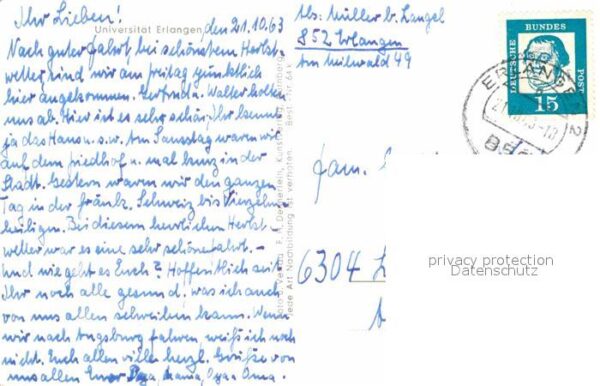 Ihr Lieben!
Universität Erlangen
den 21.10.63
Nach guter Fahrt bei schönstem Herbst-
wetter sind wir am Freitag pünktlich
hier angekommen. Gertrud u. Walter holten
uns ab. Hier ist es sehr schön, Ihr kennt
ja das Haus u.s.w. Am Samstag waren wir
auf dem Friedhof u. mal kurz in der
Stadt. Gestern waren wir den ganzen
Tag in der fränk. Schweiz bis Vierzehn-
heiligen. Bei diesem herrlichen Herbst-
wetter war es eine sehr schöne Fahrt. -
Und wie geht es Euch? Hoffentlich seit
Ihr noch alle gesund, was ich auch
von uns allen schreiben kann. Wenn
wir nach Augsburg fahren, weiß ich noch
nicht. Euch allen viele herzl. Grüße von
uns allen Eure Mama, Oma.
Abs: Müller b. Langel
852 Erlangen
Am Meilwald 49
DEUTSCHE BUNDESPOST
15
ERLANGEN 2
Fam.
6304 L
privacy protection
Datenschutz
Jede Art Nachbildung ist verboten.